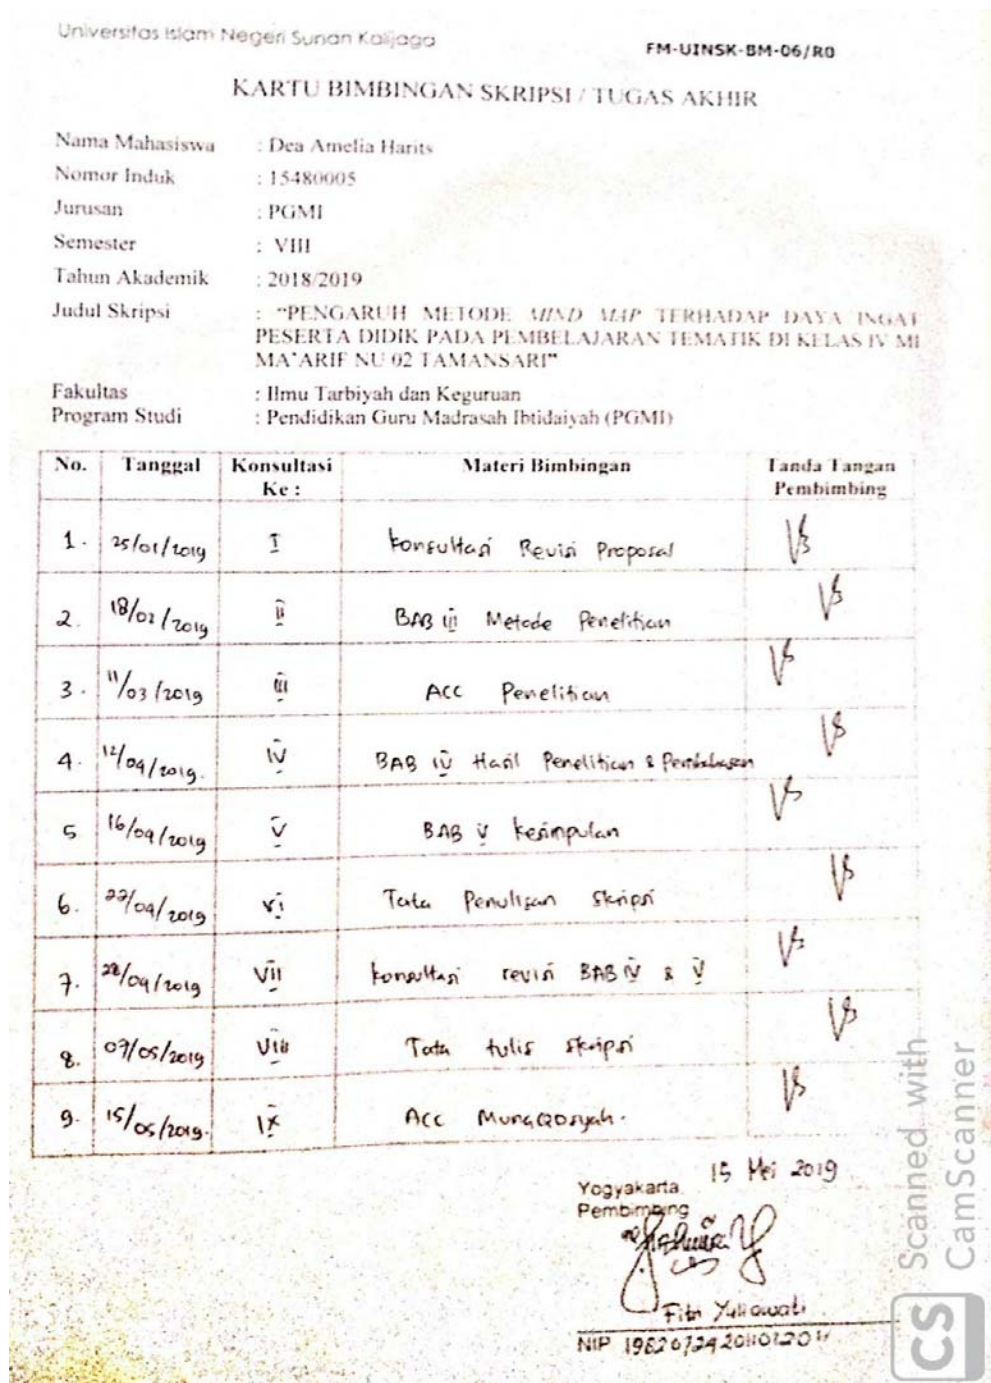 Universitas Islam Negeri Sunan Kalijaga
FM-UINSK-BM-06/R0
KARTU BIMBINGAN SKRIPSI / TUGAS AKHIR
Nama Mahasiswa : Dea Amelia Harits
Nomor Induk : 15480005
Jurusan : PGMI
Semester : VIII
Tahun Akademik : 2018/2019
Judul Skripsi : "PENGARUH METODE MIND MAP TERHADAP DAYA INGAT
PESERTA DIDIK PADA PEMBELAJARAN TEMATIK DI KELAS IV MI
MA'ARIF NU 02 TAMANSARI"
Fakultas : Ilmu Tarbiyah dan Keguruan
Program Studi : Pendidikan Guru Madrasah Ibtidaiyah (PGMI)
No. Tanggal Konsultasi Ke : Materi Bimbingan Tanda Tangan Pembimbing
1. 25/01/2019 I Konsultasi Revisi Proposal
2. 18/02/2019 II BAB III Metode Penelitian
3. 11/03/2019 III ACC Penelitian
4. 12/04/2019. IV BAB IV Hasil Penelitian & Pembahasan
5 16/04/2019 V BAB V Kesimpulan
6. 22/04/2019 VI Tata Penulisan Skripsi
7. 28/04/2019 VII Konsultasi revisi BAB IV & V
8. 07/05/2019 VIII Tata tulis skripsi
9. 15/05/2019. IX ACC Munaqosyah.
Yogyakarta 15 Mei 2019
Pembimbing
Fitri Yuliawati
NIP
Scanned with
CamScanner
CS